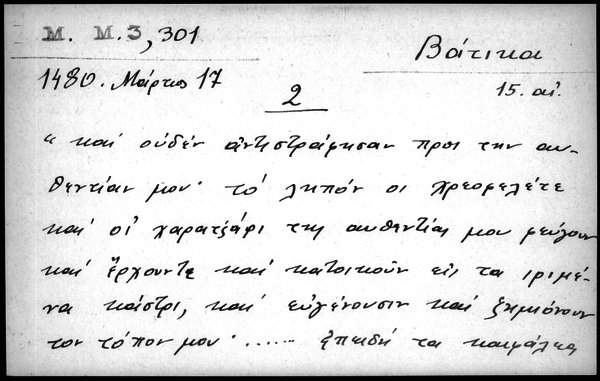 Μ. Μ.3, 301
Βάτικα
1480. Μάρτιος 17
15. αἰ.
2
“ καί οὐδέν ἀντιστράφησαν προς την αυ-
θεντίαν μου· τό ληπόν οι χρεοφελέτε
καί οἱ χαρατζάρι της αυθεντίας μου φεύγουν
καί ἔρχουντε καί κατοικοῦν εἰς τα ιριμέ-
να κάστρι, καί εὐγένουσιν καί ζημιόνουν
τον τόπον μου· ...... ἐπειδή τα κεφάλεα